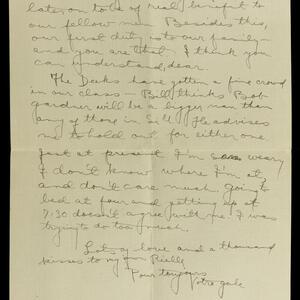 later on to be of real benefit to
our fellow men Besides this,
our first duty is to our family—
and you are that. I think you
can understand, dear.
The Deeks have gotten a fine crowd
in our class — Bill thinks Bob
gardner will be a bigger man than
any of those in He advises
me to hold out for either one
Just at present I'm so weary
I don't know where I'm at,
and don't care much. going to
bed at four and getting up at
7:30 doesn't agree with me. I was
trying to do too much.
Lots of love and a thousand
kisses to my own
Pour toujours